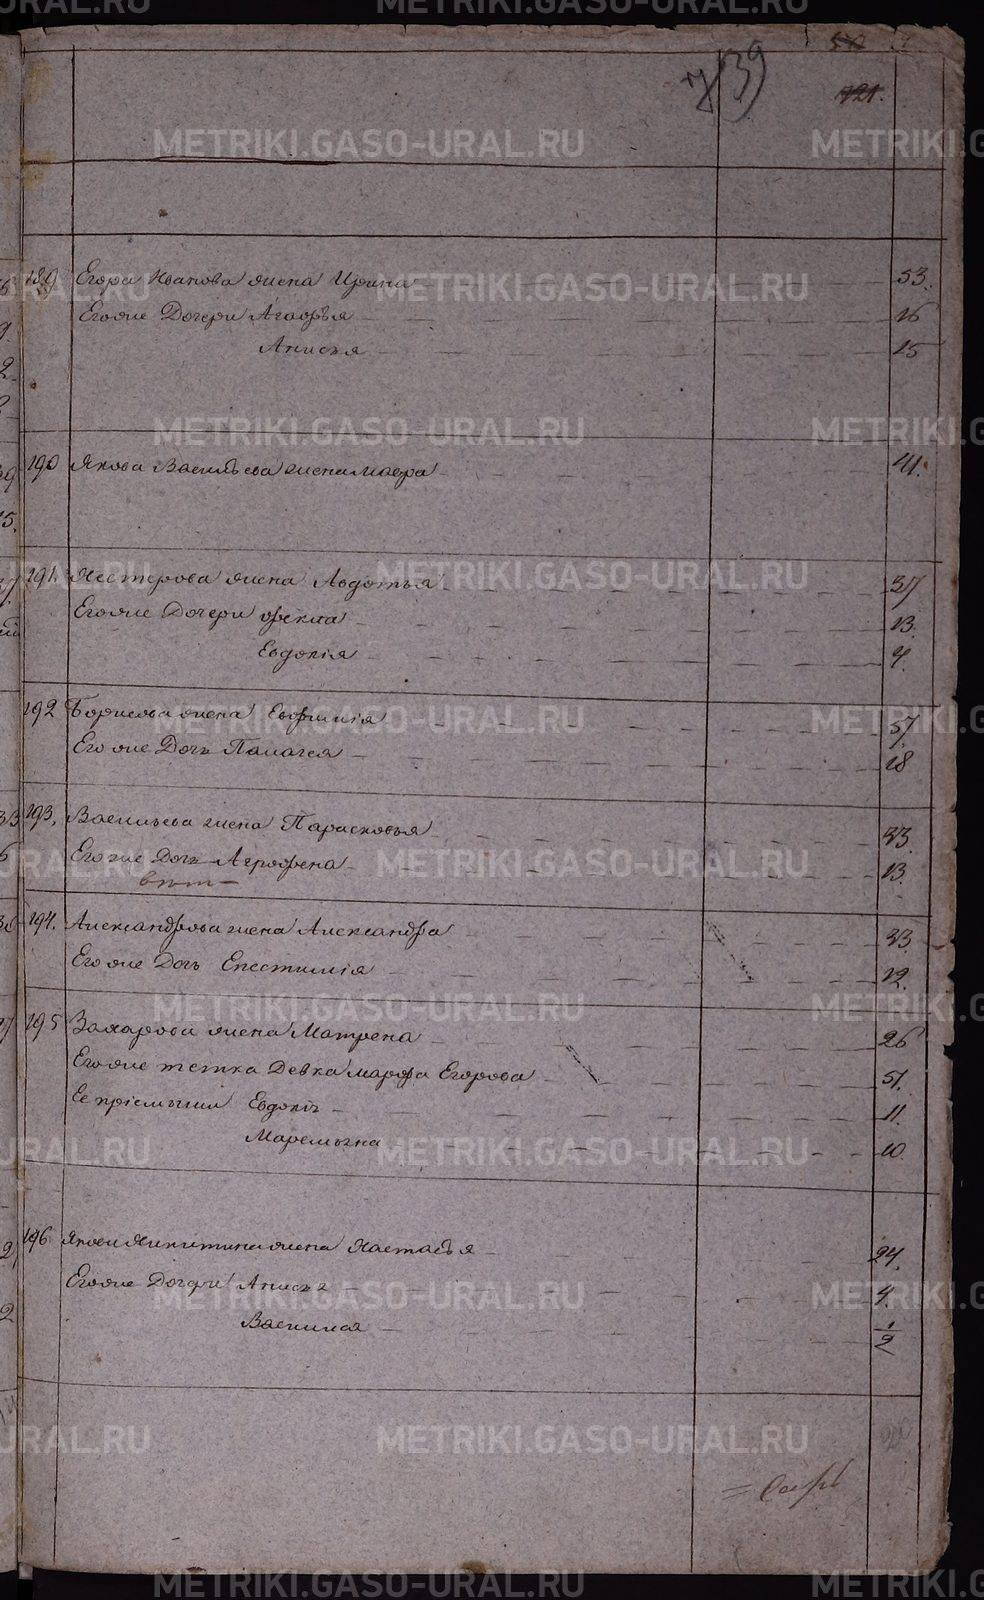 739
121.
189 Егора Иванова жена Ирина 53.
Егоже Дочери Агаѳья 16
Анисья 15
190 Якова Васильева жена Мавра 41.
191. Нестерова жена Авдотья 37
Егоже Дочери Ѳекла 13.
Евдокія 4.
192 Борисова жена Евфимія 57.
Егоже Дочь Палагея 18
193. Васильева жена Парасковья 33.
Егоже Дочь Аграфена 13.
194. Александрова жена Александра 33.
Егоже Дочь Епестимія 12.
195 Захарова жена Матрена 26
Егоже тетка Девка Марфа Егорова 51.
Ее пріемыши Евдокія 11.
Маремьяна 10.
196 Якова Никитина жена Настасья 24.
Егоже Дочери Анисья 4.
Василиса 1/2
METRIKI.GASO-URAL.RU